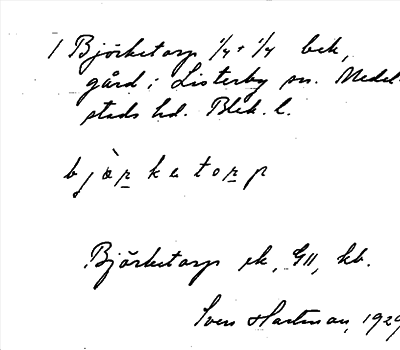 1 Björketorp 1/4 + 1/4 bek,
gård i Listerby sn. Medel-
stads hd. Blek. l.
b j ò r k e t o r p
Björketorp ek, GII, kb.
Sven Hartman, 1929